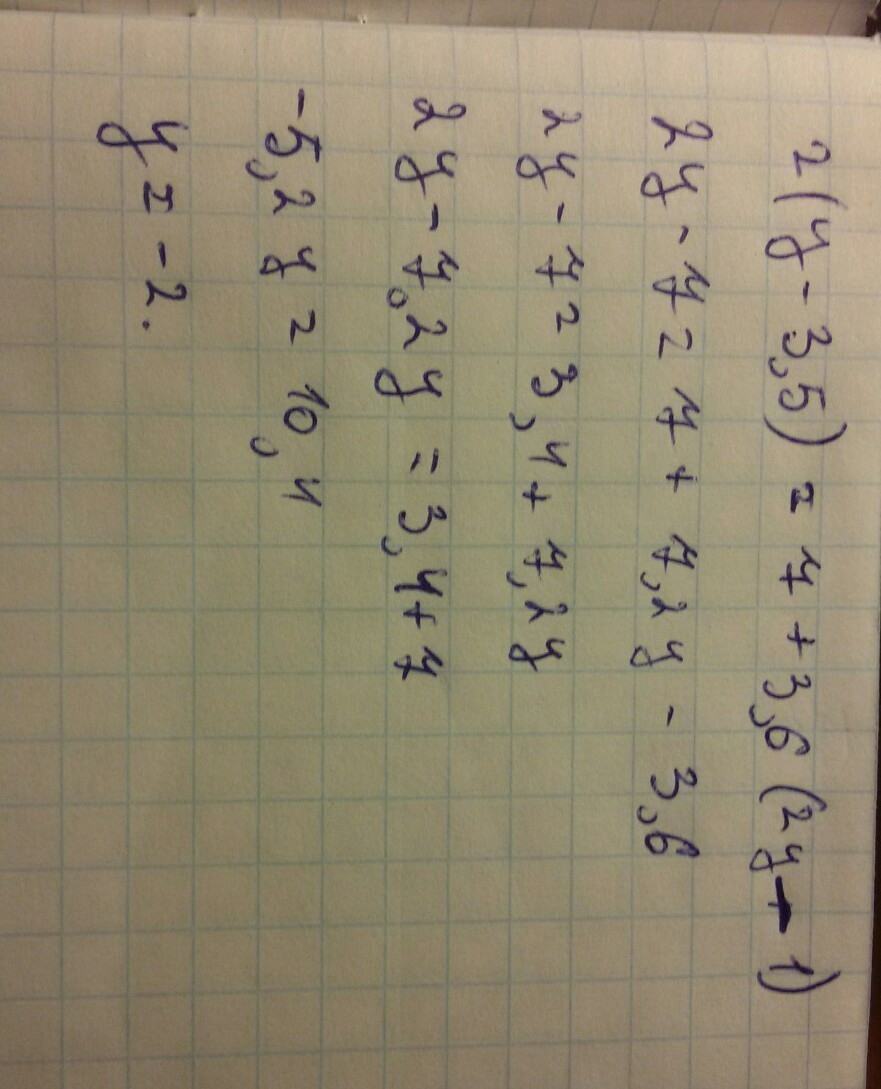 2(y - 3,5) = 7 + 3,6(2y - 1)
2y - 7 = 7 + 7,2y - 3,6
2y - 7 = 3,4 + 7,2y
2y - 7,2y = 3,4 + 7
-5,2y = 10,4
y = -2.